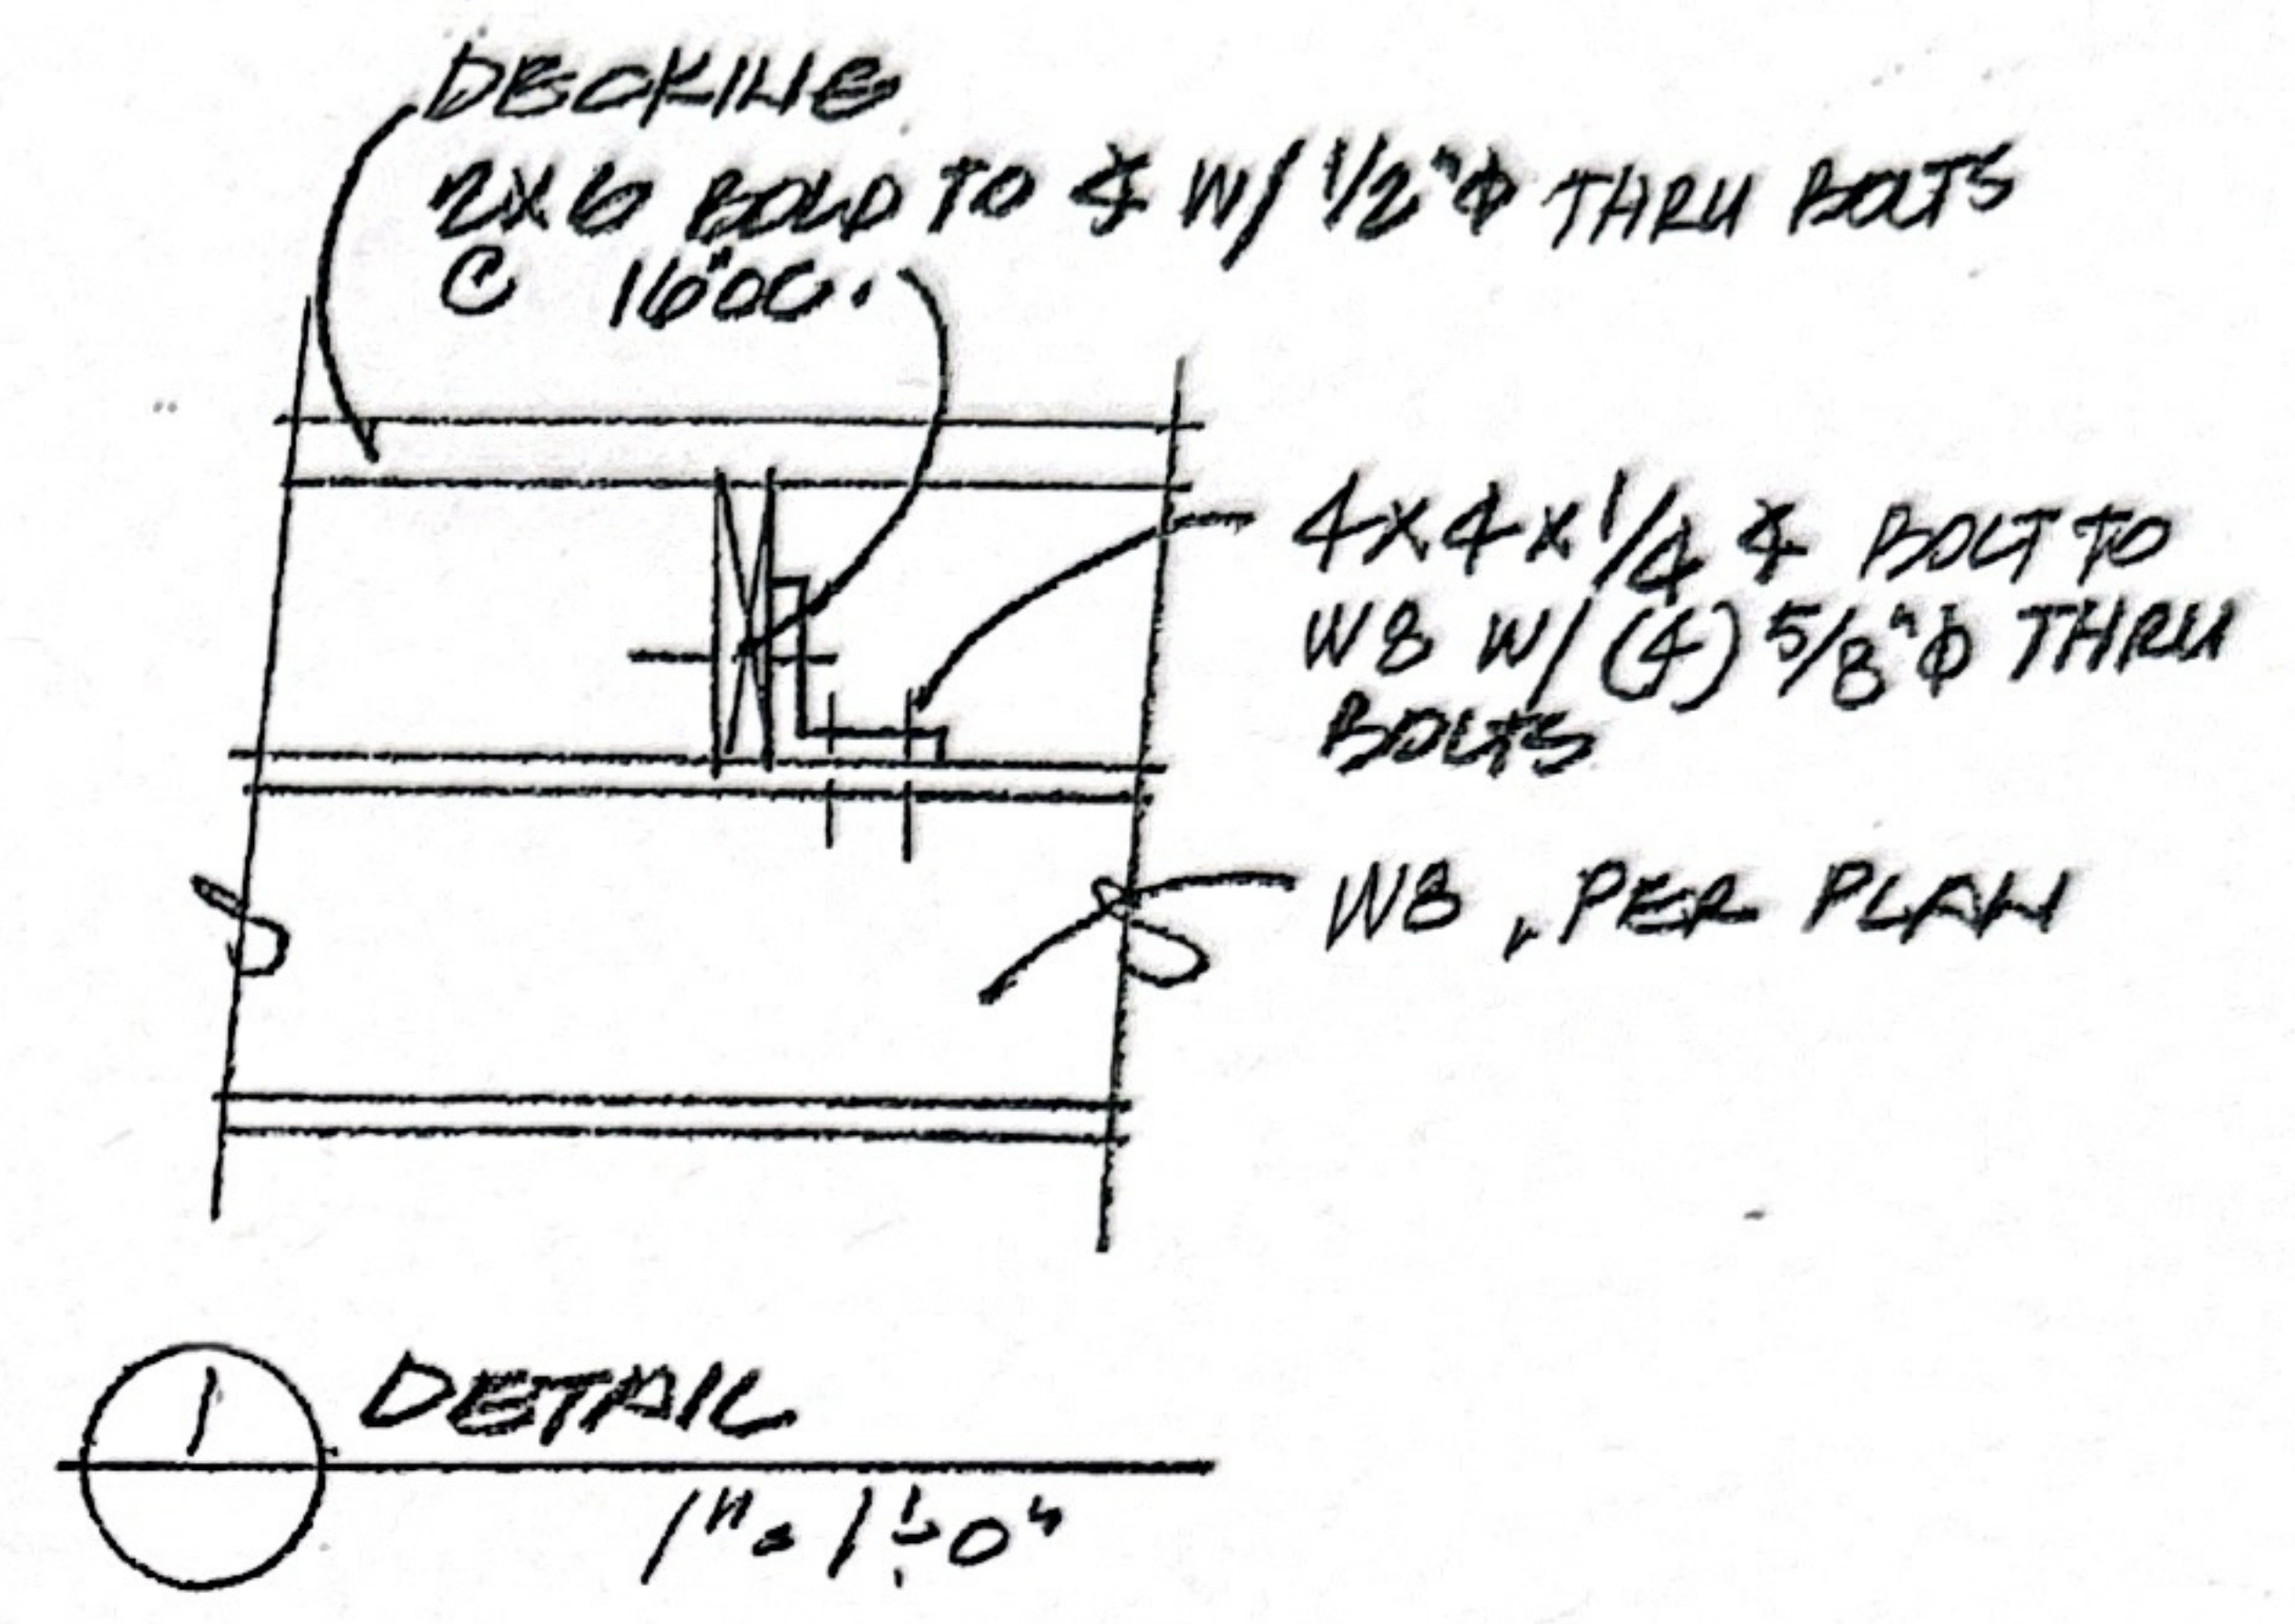 DECKING
2X6 BOLD TO ∡ W/ 1/2"Φ THRU BOLTS
@ 16"OC.
4X4X1/4 ∡ BOLT TO
W8 W/ (4) 5/8"Φ THRU
BOLTS
W8, PER PLAN
1
DETAIL
1"=1'-0"